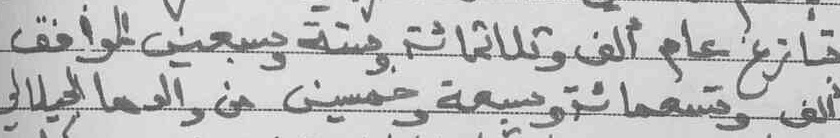 فتازغ عام ألف وثلاثمائة وستة وسبعين الموافق
ألف وتسعمائة وسبعة وخمسين من والدها الجيلالي